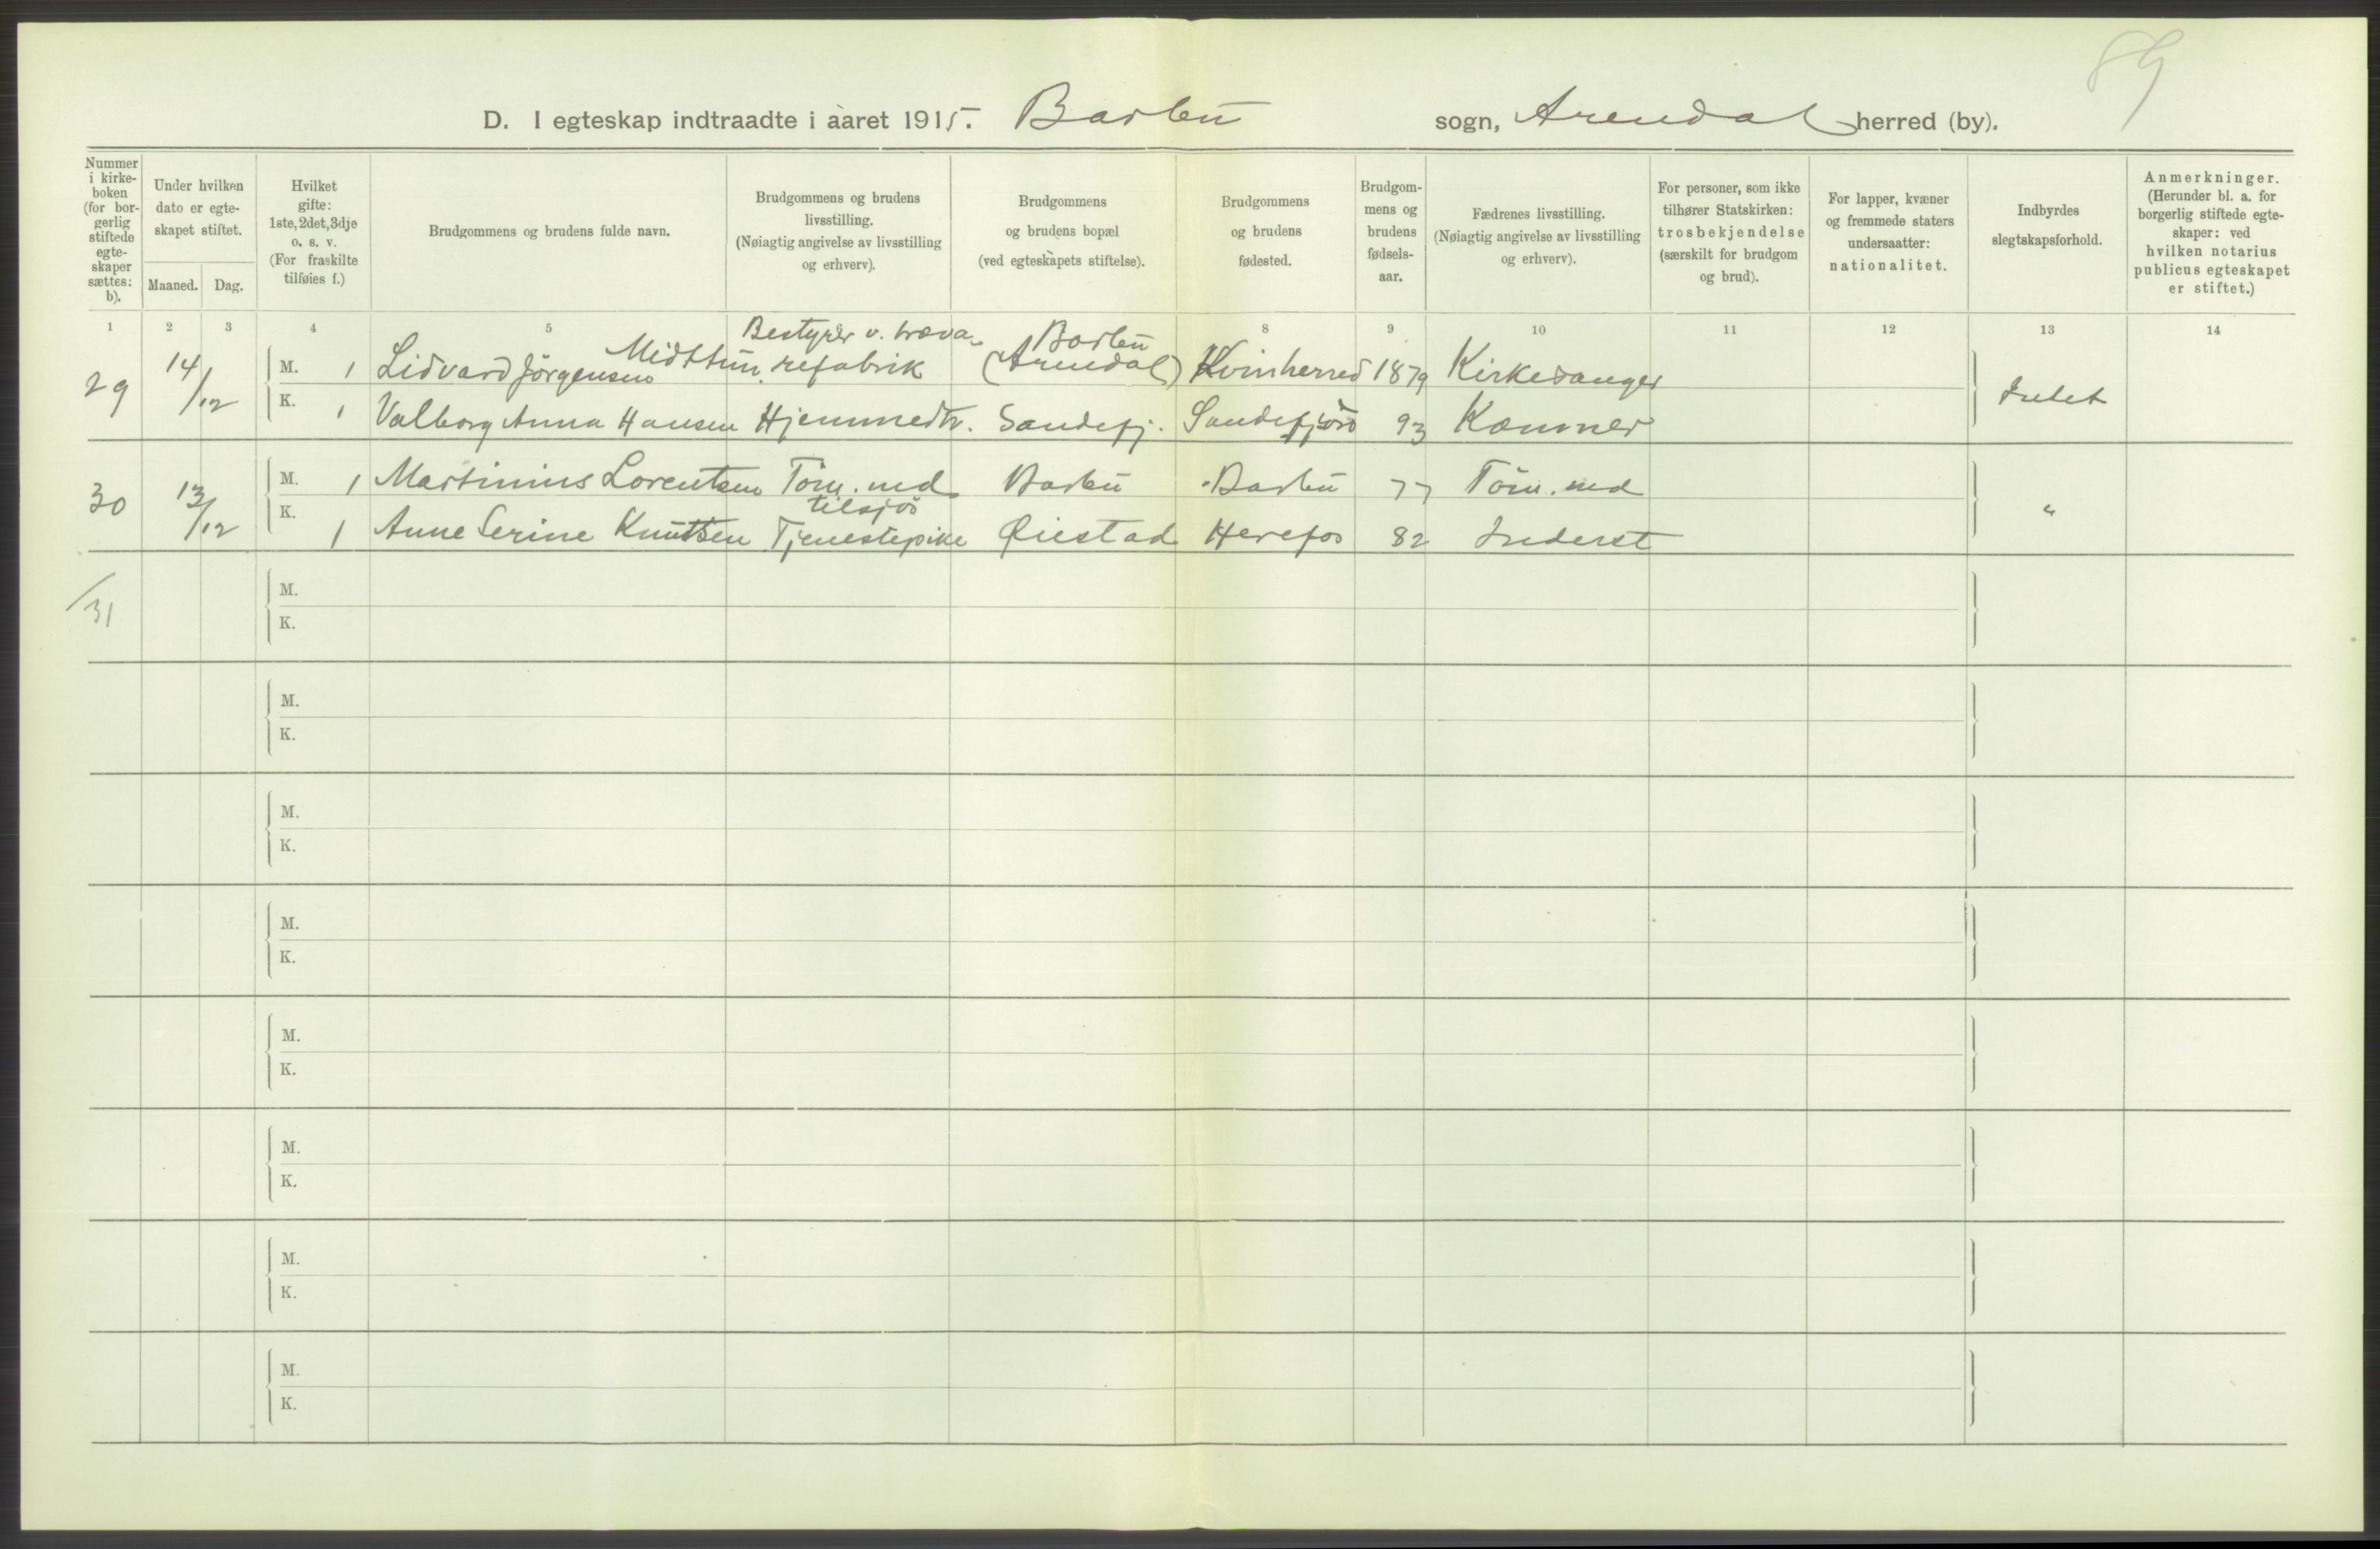 89
D. I egteskap indtraadte i aaret 1915. Barbu sogn, Arendal herred (by).
Nummer i kirke-boken (for bor-gerlig stiftede egte-skaper sættes: b).
Under hvilken dato er egte-skapet stiftet.
Maaned. Dag.
Hvilket gifte: 1ste, 2det, 3dje o. s. v. (For fraskilte tilføies f.)
Brudgommens og brudens fulde navn.
Brudgommens og brudens livsstilling. (Nøiagtig angivelse av livsstilling og erhverv).
Brudgommens og brudens bopæl (ved egteskapets stiftelse).
Brudgommens og brudens fødested.
Brudgom-mens og brudens fødsels-aar.
Fædrenes livsstilling. (Nøiagtig angivelse av livsstilling og erhverv).
For personer, som ikke tilhører Statskirken: trosbekjendelse (særskilt for brudgom og brud).
For lapper, kvæner og fremmede staters undersaatter: nationalitet.
Indbyrdes slegtskapsforhold.
Anmerkninger. (Herunder bl. a. for borgerlig stiftede egte-skaper: ved hvilken notarius publicus egteskapet er stiftet.)
1 2 3 4 5 8 9 10 11 12 13 14
29 14/12 M. 1 Lidvard Jörgensen Midttun Bestyrer v. træva-refabrik Barbu (Arendal) Kvinherred 1879 Kirkesanger Intet
K. 1 Valborg Anna Hansen Hjemmedtr. Sandefj. Sandefjord 93 Kæmner
30 13/12 M. 1 Martinius Lorentsen Töm.md tilsjös Barbu Barbu 77 Töm.md "
K. 1 Anne Serine Knutsen Tjenestepike Øiestad Herefos 82 Inderst
31 M.
K.
M.
K.
M.
K.
M.
K.
M.
K.
M.
K.
M.
K.
M.
K.